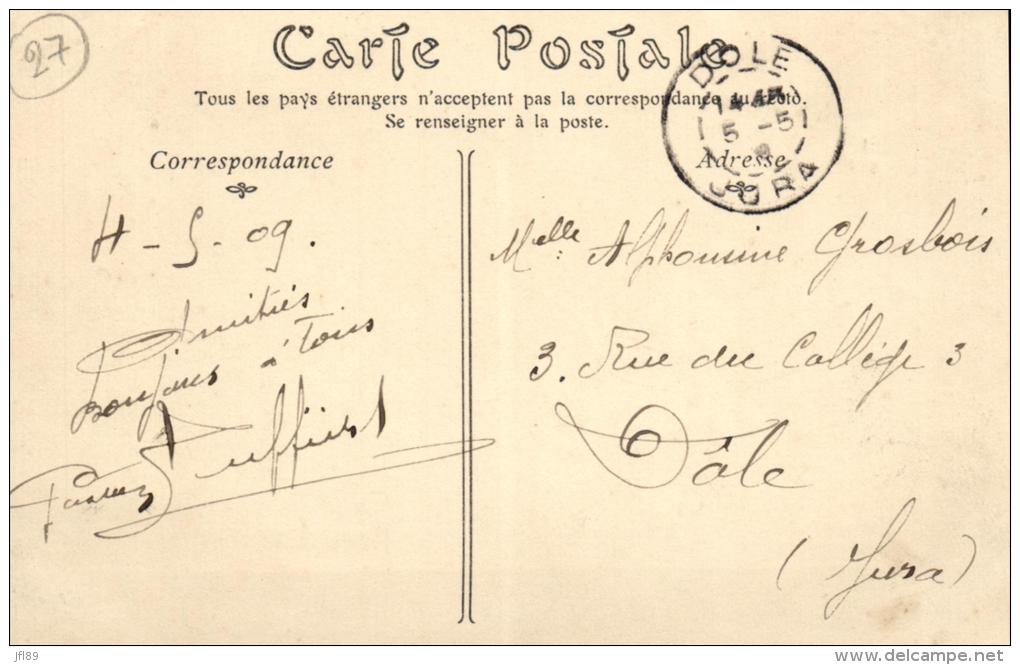 27
Carte Postale
Tous les pays étrangers n'acceptent pas la correspondance au recto.
Se renseigner à la poste.
DOLE
5 -5
JURA
Correspondance
Adresse
4 - 5 - 09.
Amitiés
Bonjour à Tous
Melle Alphonsine Grosbois
3. Rue du Collège 3
Dôle
(Jura)
jfl89
www.delcampe.net